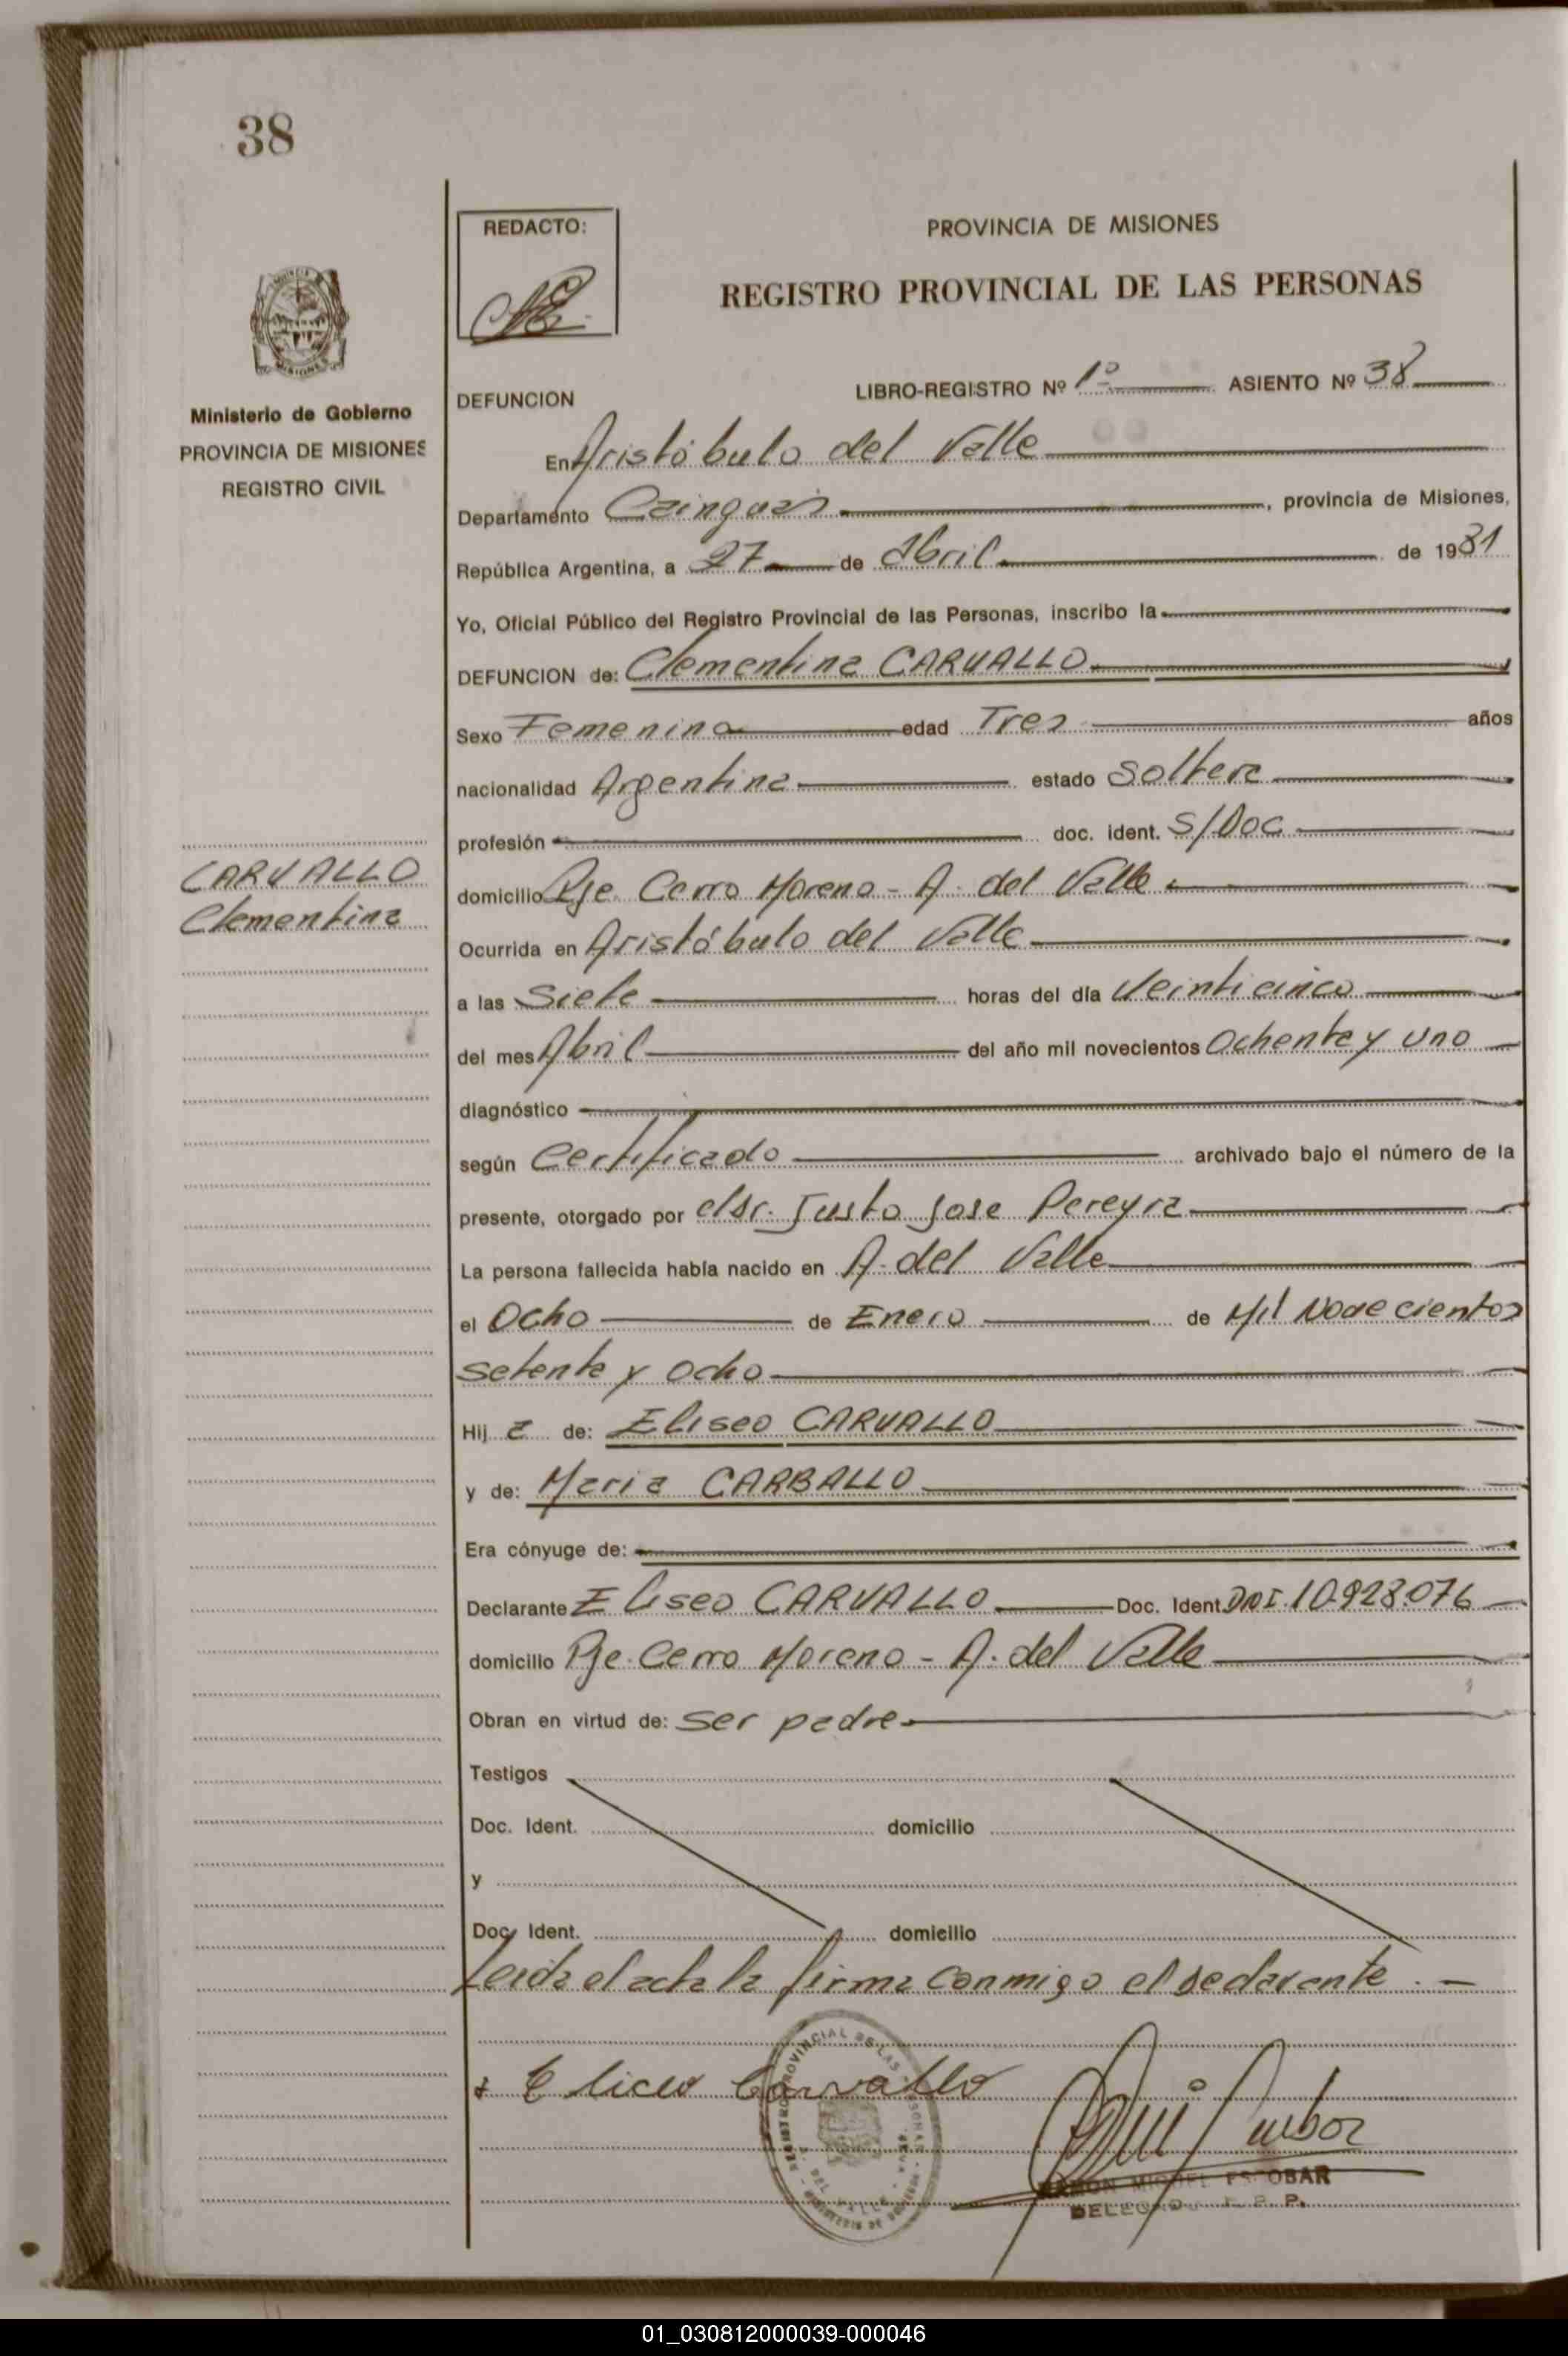 38
REDACTO:
PROVINCIA DE MISIONES
REGISTRO PROVINCIAL DE LAS PERSONAS
MISIONES
Ministerio de Gobierno
PROVINCIA DE MISIONES
REGISTRO CIVIL
LIBRO-REGISTRO Nº 1º ASIENTO Nº 38
DEFUNCION
En Aristóbulo del Valle
Departamento Cainguas, provincia de Misiones,
República Argentina, a 27 de Abril de 1981
Yo, Oficial Público del Registro Provincial de las Personas, inscribo la
DEFUNCION de: Clementina CARVALLO
Sexo Femenino edad Tres años
nacionalidad Argentina estado Soltera
profesión doc. ident. S/Doc
CARVALLO
Clementina
domicilio Pje. Cerro Moreno - A. del Valle
Ocurrida en Aristóbulo del Valle
a las Siete horas del día Veinticinco
del mes Abril del año mil novecientos Ochenta y Uno
diagnóstico
según Certificado archivado bajo el número de la
presente, otorgado por el Sr. Justo Jose Pereyra
La persona fallecida había nacido en A. del Valle
el Ocho de Enero de Mil Novecientos
setenta y ocho
Hij a de: Eliseo CARVALLO
y de: Maria CARBALLO
Era cónyuge de:
Declarante Eliseo CARVALLO Doc. Ident. DNI. 10.928.076
domicilio Pje. Cerro Moreno - A. del Valle
Obran en virtud de: ser padre
Testigos
Doc. Ident. domicilio
y
Doc. Ident. domicilio
Leida el acta la firma conmigo el declarante. -
Eliceo Carvallo
REGISTRO PROVINCIAL DE LAS PERSONAS
RAMON MIGUEL ESCOBAR
DELEGADO R. P. P.
01_030812000039-000046